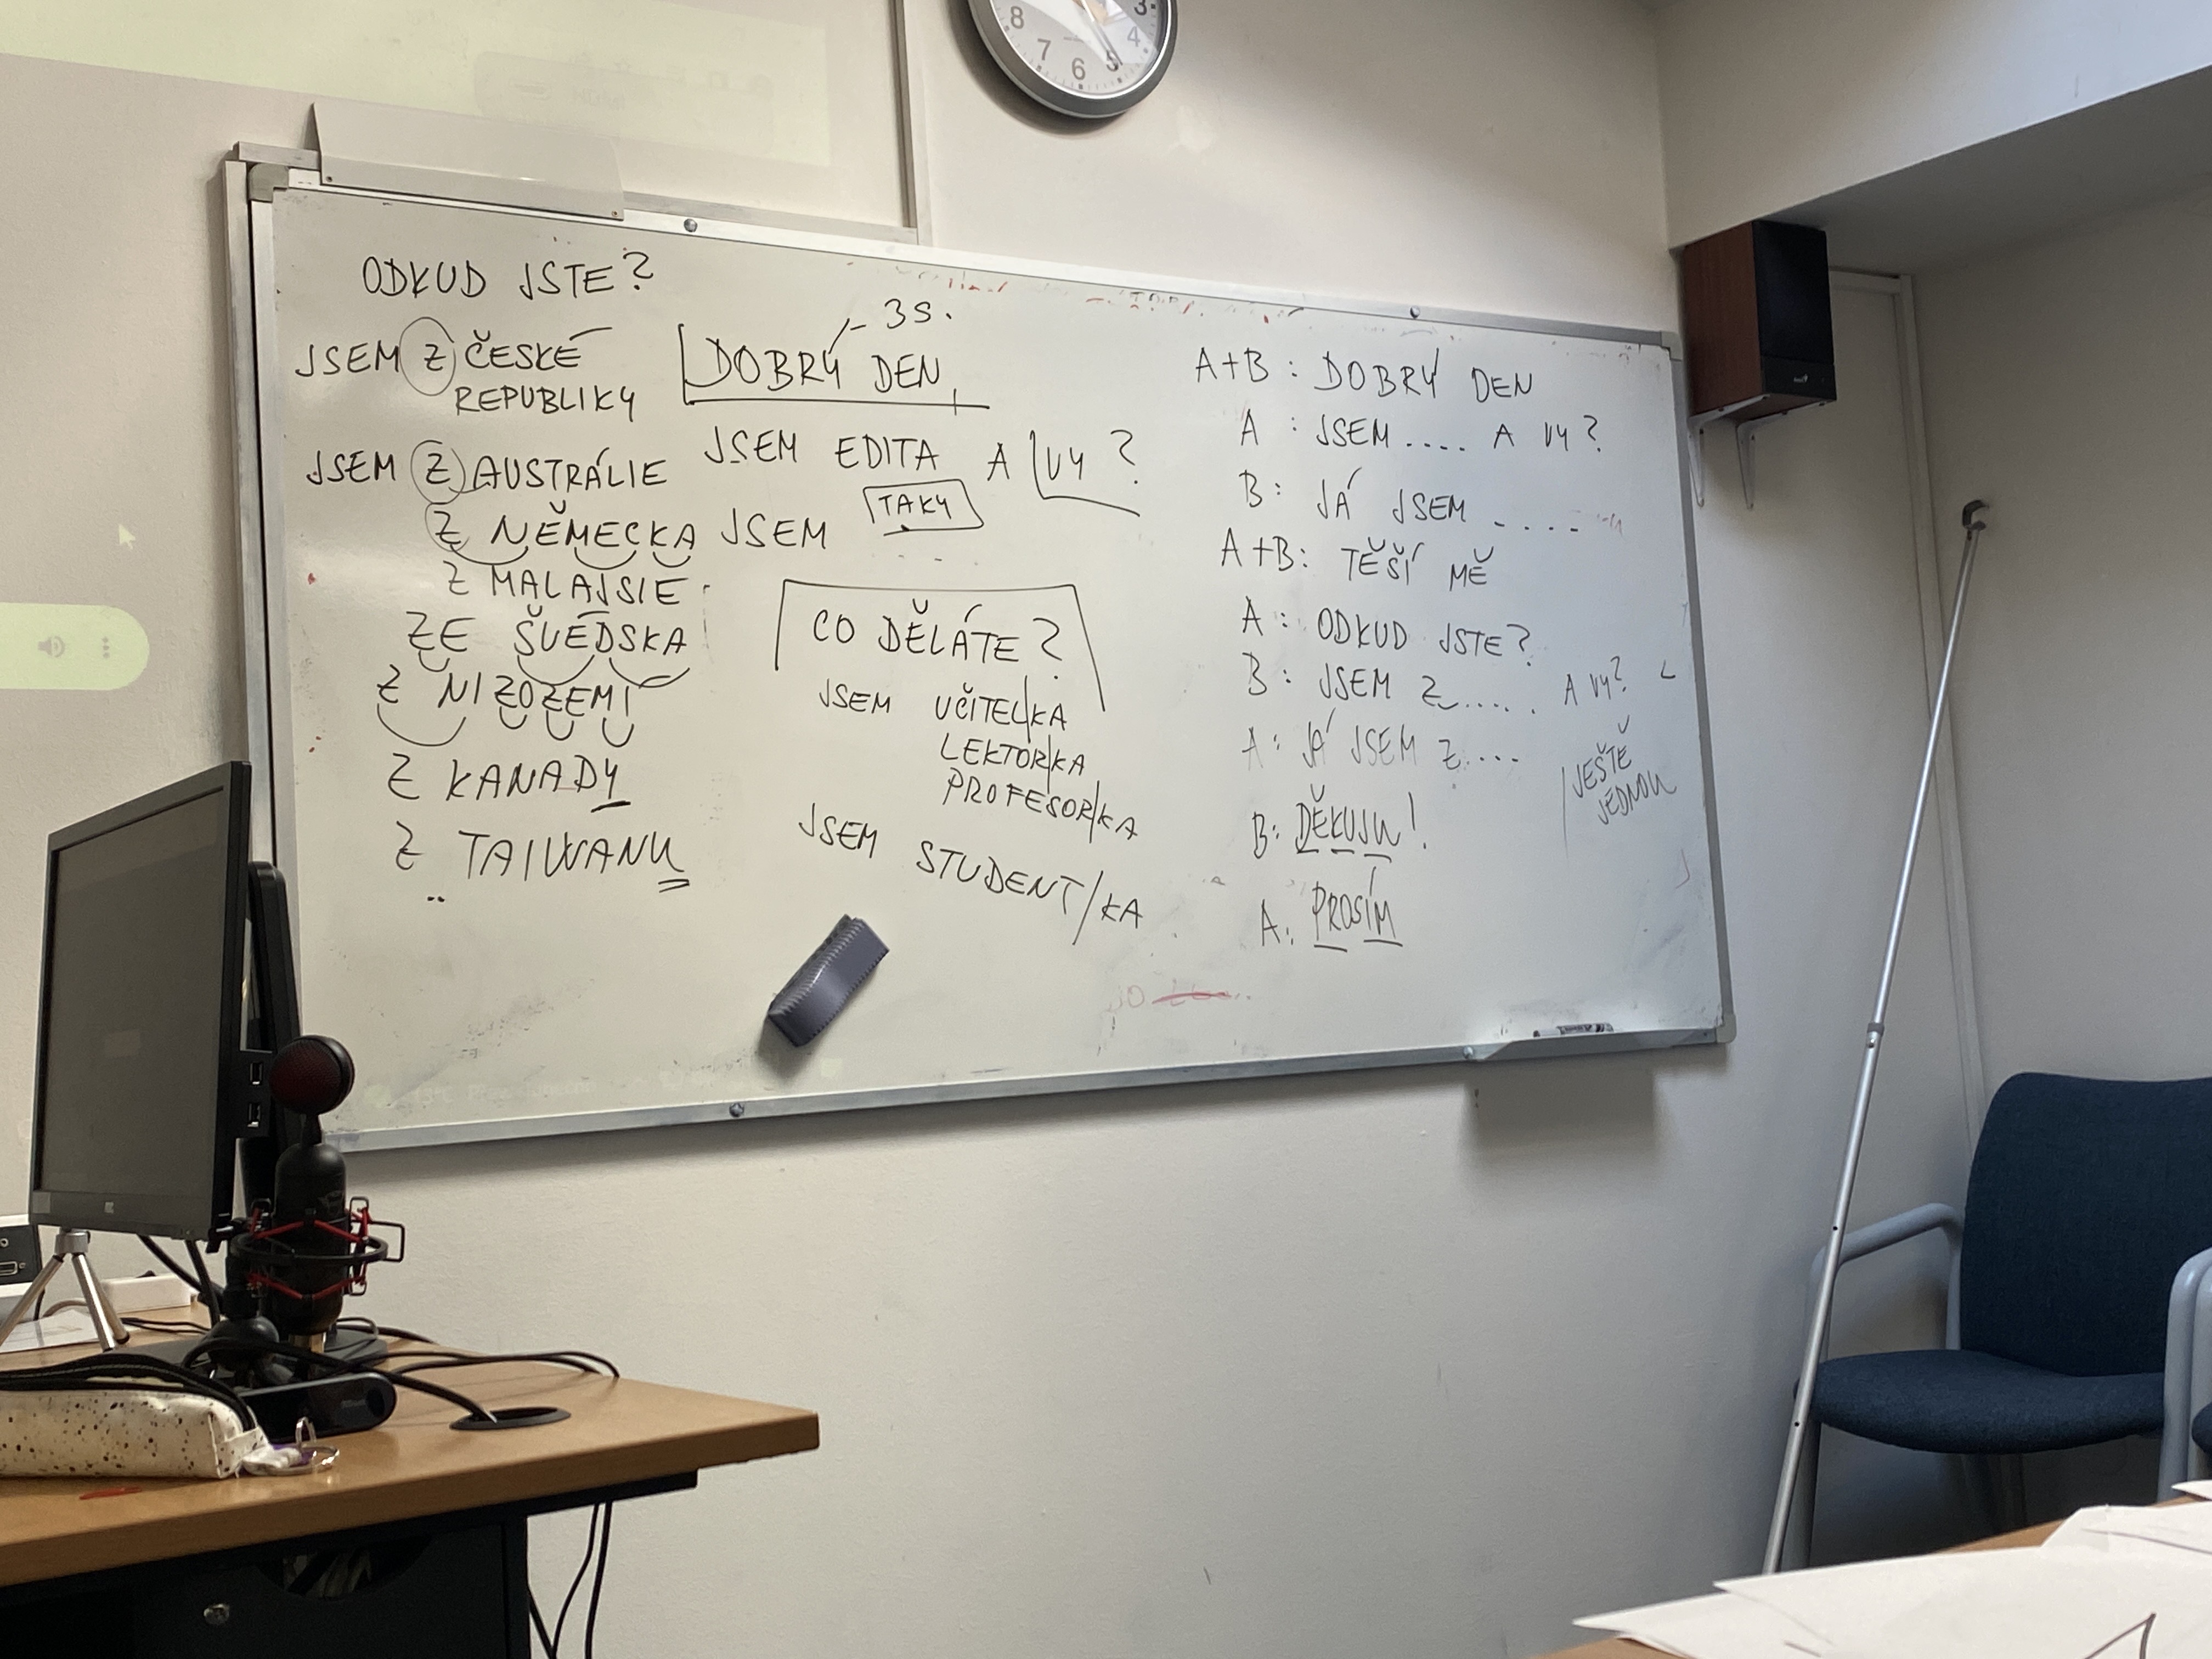 8
7
6
5
4
3
ODKUD JSTE?
JSEM Z ČESKÉ
REPUBLIKY
JSEM Z AUSTRÁLIE
Z NĚMECKA
Z MALAJSIE
ZE ŠVÉDSKA
Z NIZOZEMÍ
Z KANADY
Z TAIWANU
- 3S.
DOBRÝ DEN,
JSEM EDITA A VY?
TAKY
JSEM
CO DĚLÁTE?
JSEM UČITEL/KA
LEKTOR/KA
PROFESOR/KA
JSEM STUDENT/KA
A+B: DOBRÝ DEN
A: JSEM.... A VY?
B: JÁ JSEM ....
A+B: TĚŠÍ MĚ
A: ODKUD JSTE?
B: JSEM Z...... A VY?
A: JÁ JSEM Z....
B: DĚKUJU!
A: PROSÍM
JEŠTĚ
JEDNOU